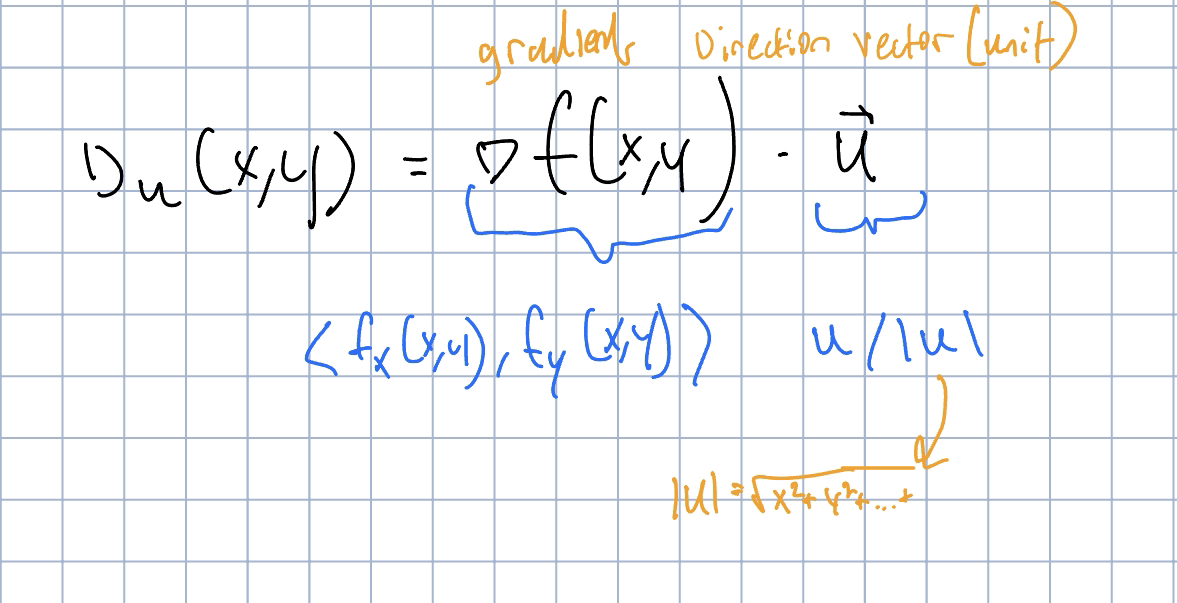 gradients Direction vector (unit)
Du(x,y) = ∇f(x,y) · u⃗
<fx(x,y), fy(x,y)> u/|u|
|u| = √x²+y²+...+